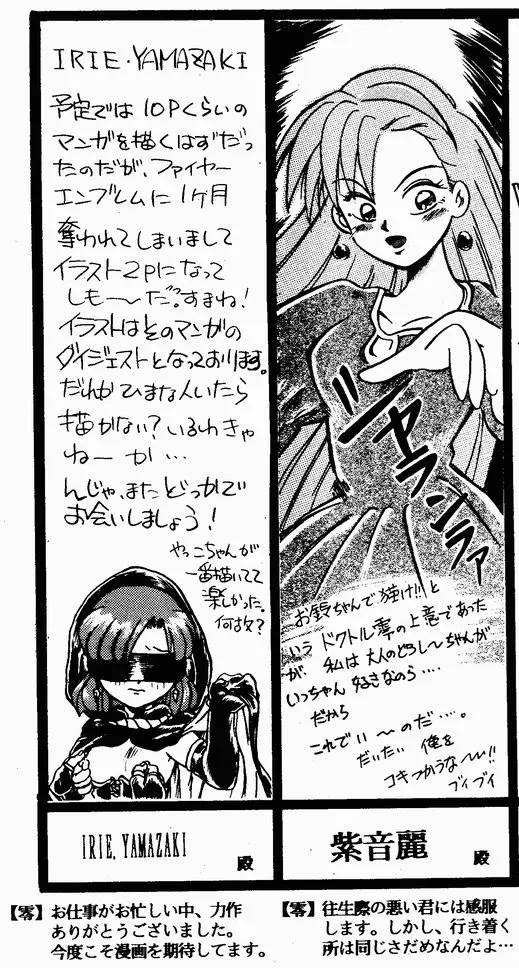 IRIE.YAMAZAKI
予定では10Pくらいの
マンガを描くはずだっ
たのだが、ファイヤー
エンブレムに1ヶ月
奪われてしまいまして
イラスト2Pになって
しも〜だ?すまね!
イラストはそのマンガの
ダイジェストとなっております。
だれか ひまな人いたら
描かない?いるわきゃ
ねーか…
んじゃ、またどっかで
お会いしましょう!
やっこちゃんが
一番描いてて
楽しかった。
何故?
IRIE.YAMAZAKI
殿
【零】お仕事がお忙しい中、力作
ありがとうございました。
今度こそ漫画を期待してます。
ジャランラァ
お鈴ちゃんで抜け!!と
いう ドクトル零の上意であった
が、私は大人のどろし〜ちゃんが
いっちゃん 好きなのら‥‥
だから
これでい〜のだ…。
だいたい 俺を
コキつかうな〜!!
ブイブイ
紫音麗
殿
【零】往生際の悪い君には感服
します。しかし、行き着く
所は同じさだめなんだよ…